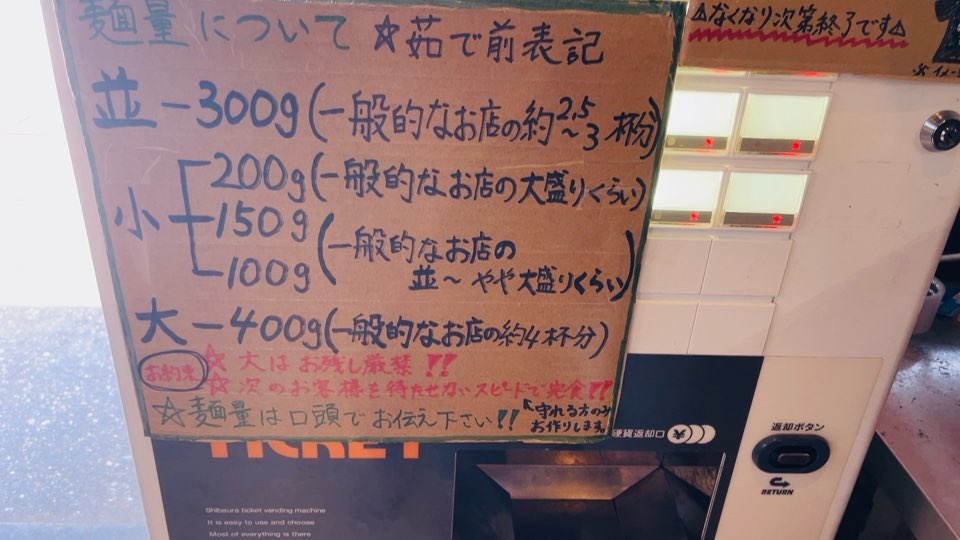 麺量について ☆茹で前表記
並 ― 300g(一般的なお店の約2.5~3杯分)
小 200g(一般的なお店の大盛りくらい)
150g
100g (一般的なお店の
並~やや大盛りくらい)
大 ― 400g(一般的なお店の約4杯分)
お約束 ☆ 大はお残し厳禁!!
☆ 次のお客様を待たせないスピードで完食!!
☆麺量は口頭でお伝え下さい!!
守れる方のみ
お作りします。
⚠なくなり次第終了です⚠
※イメー
TICKET
硬貨返却口 大
返却ボタン
RETURN
Shibaura ticket vending machine
It is easy to use and choose
Most of everything is there